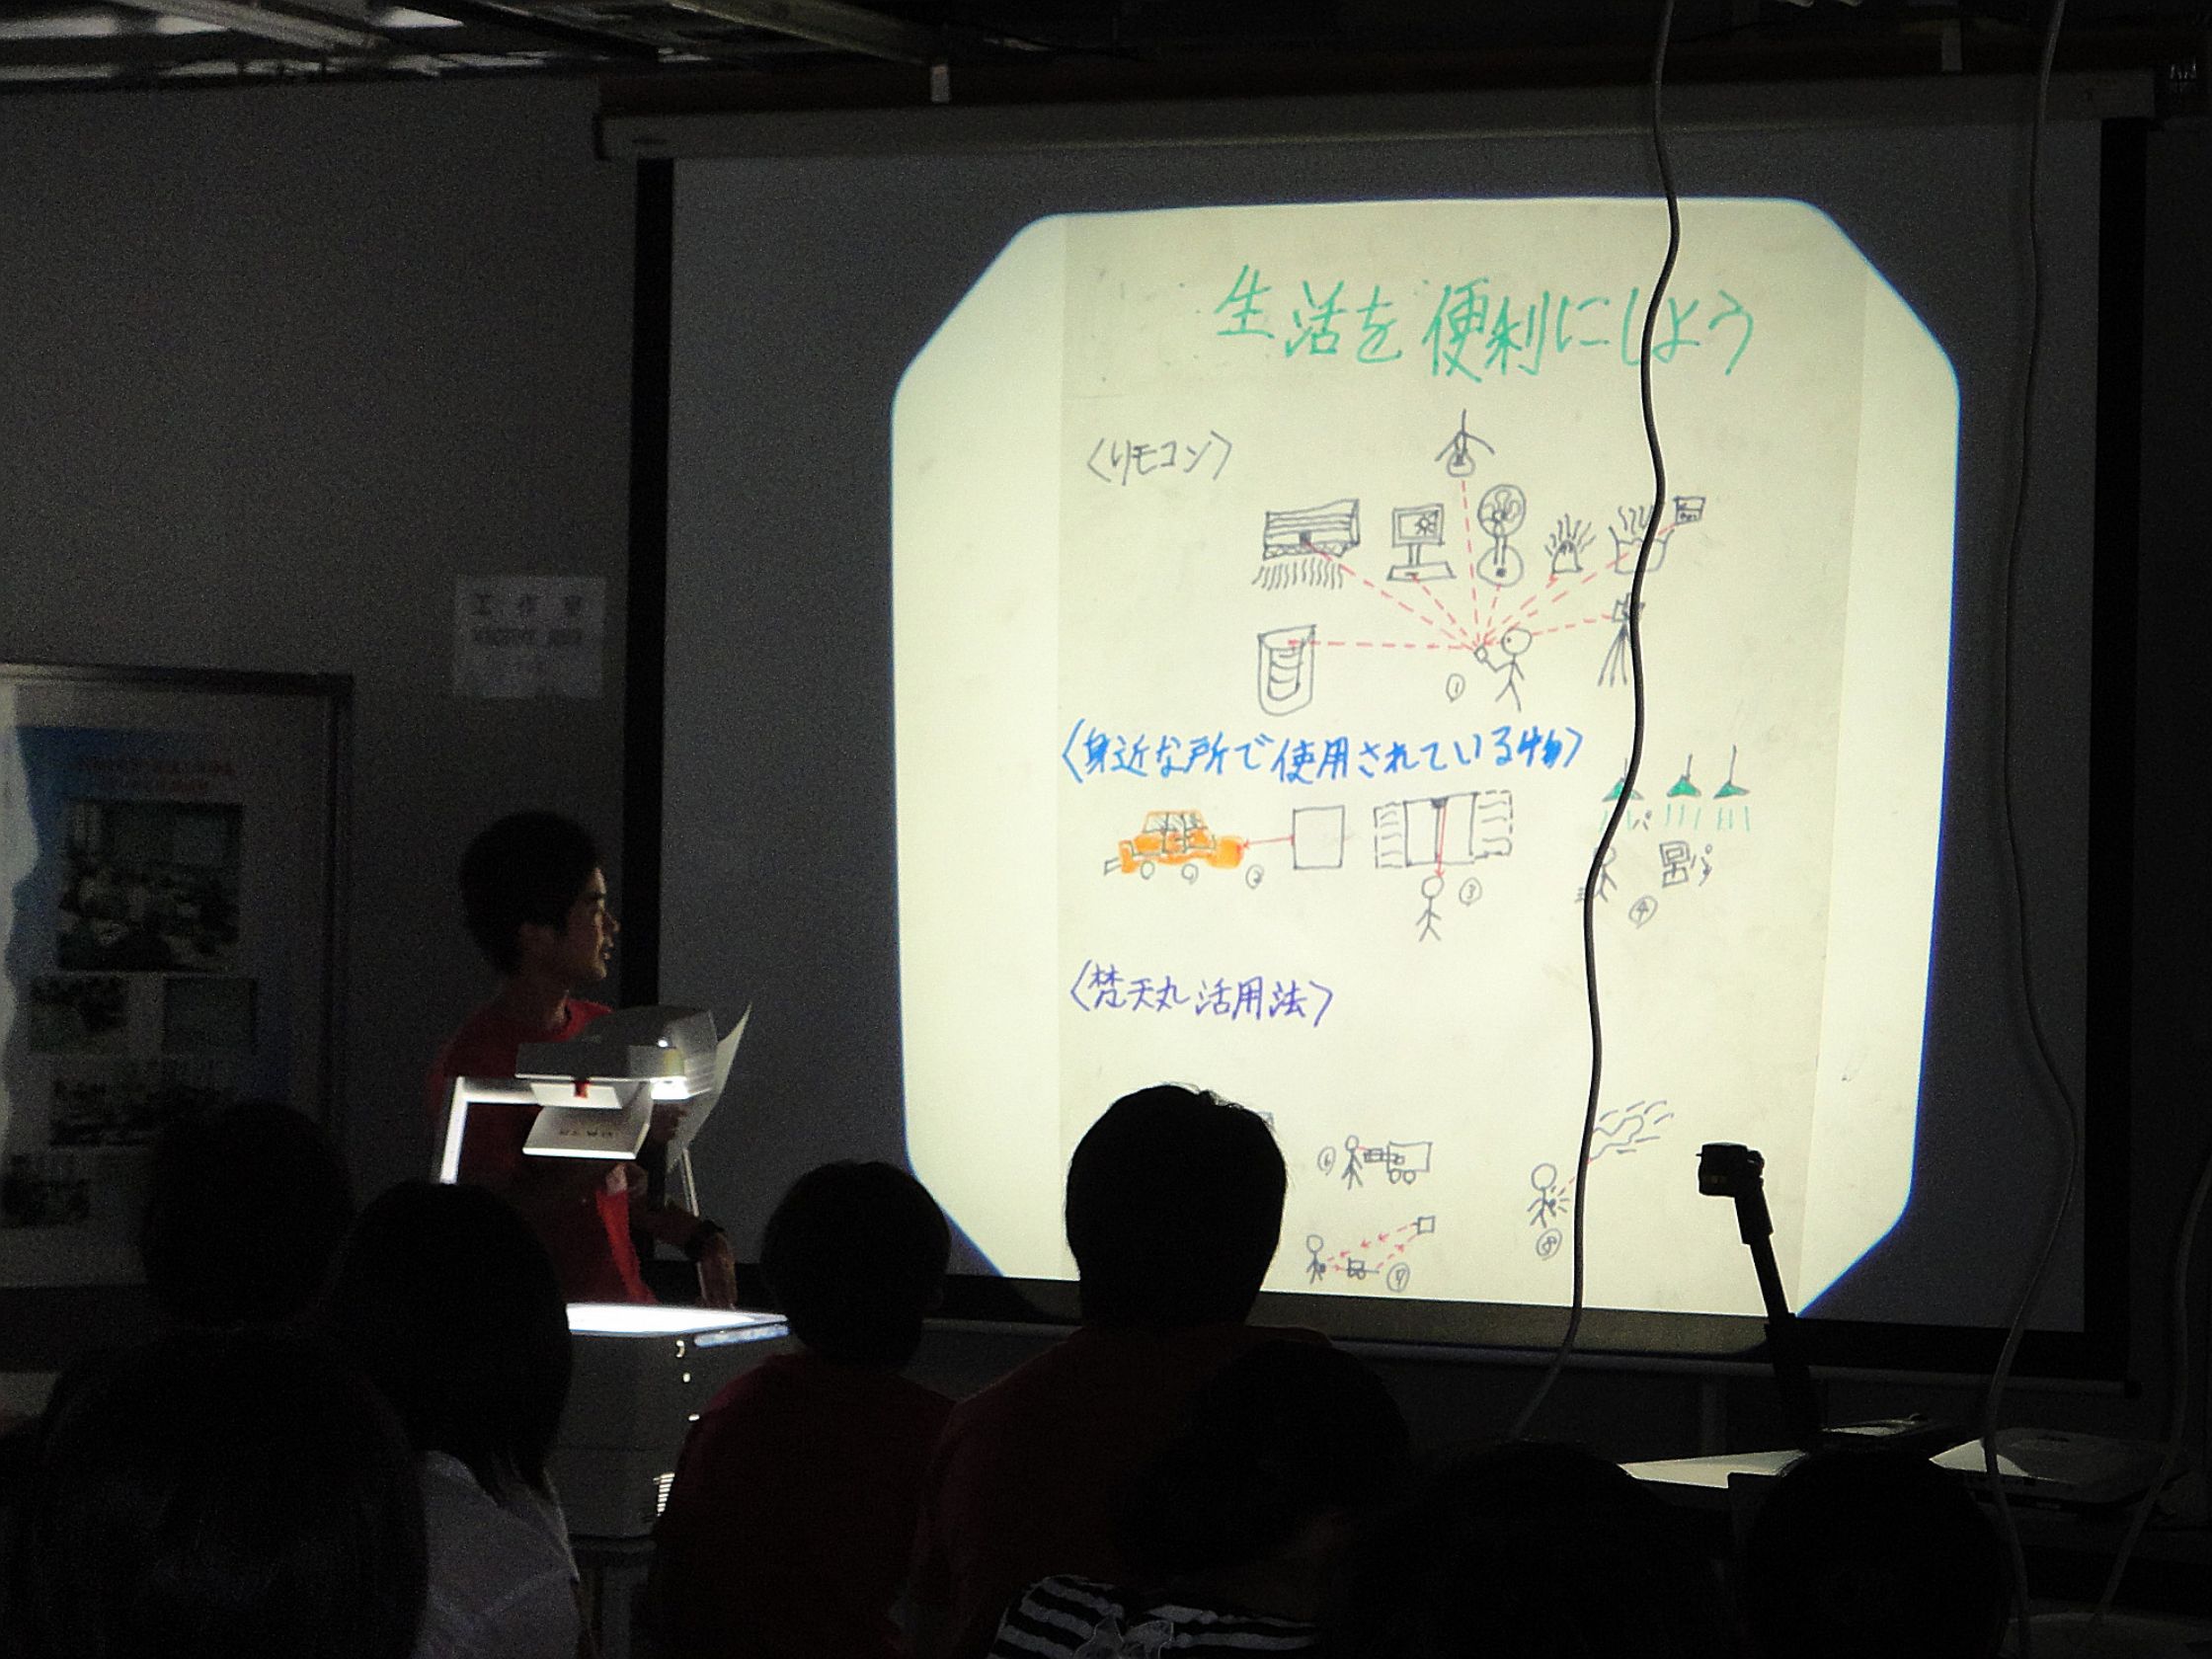 生活を便利にしよう
〈リモコン〉
①
〈身近な所で使用されている物〉
②
③
④
〈梵天丸活用法〉
⑥
⑦
⑧
工作室